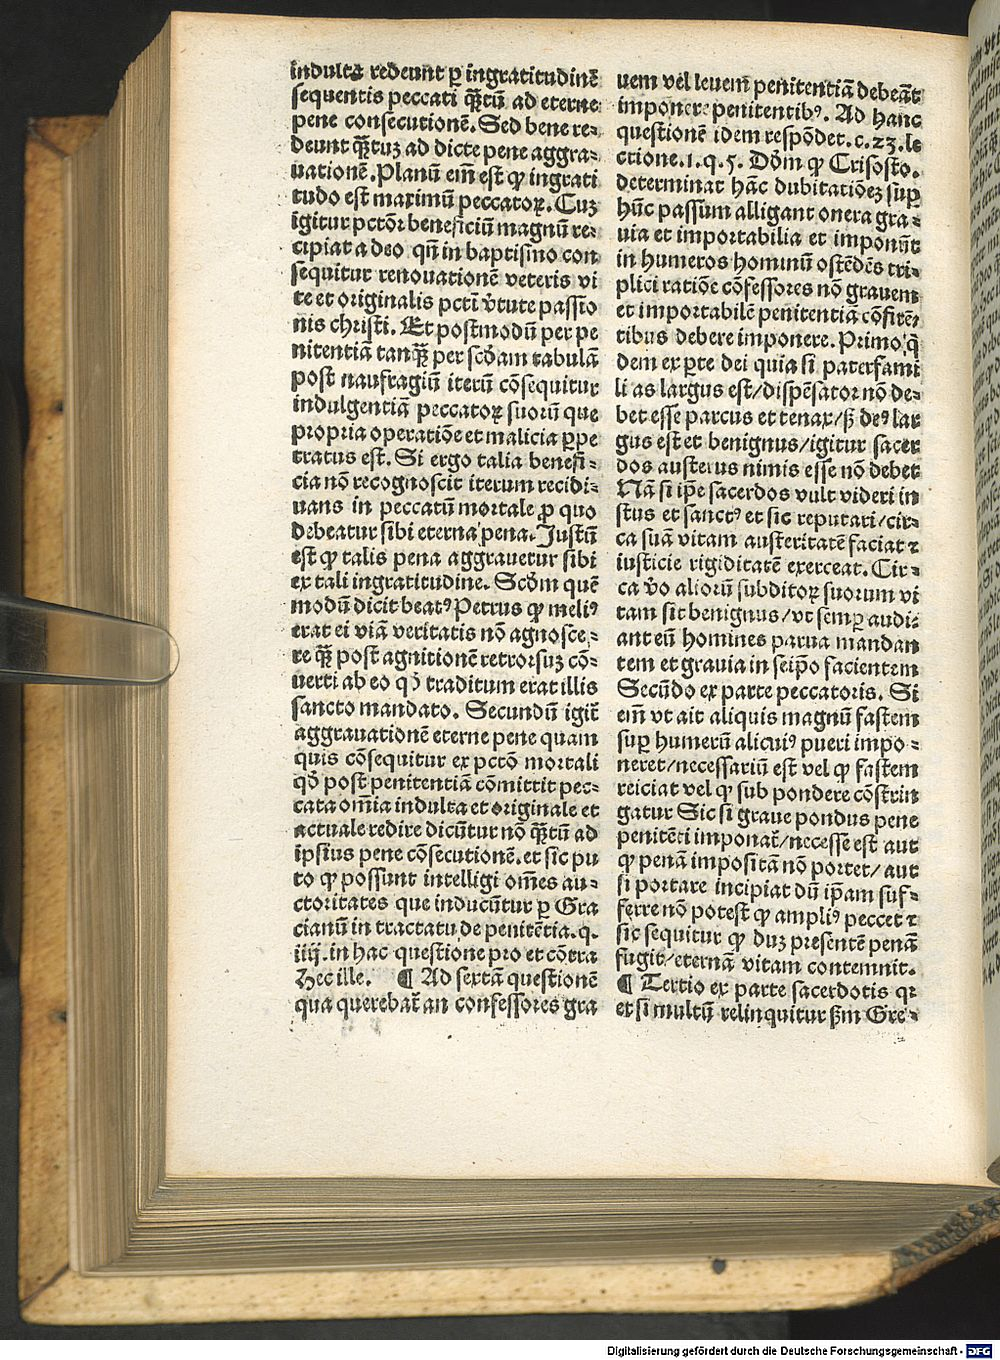 indulta redeunt ꝑ ingratitudinē
sequentis peccati qȝ̄tū ad eterne
pene consecutionē. Sed bene re⸗
deunt qȝ̄tuꝫ ad dicte pene aggra⸗
uationē. Planū em̄ est ꝙ ingrati
tudo est maximū peccatoꝝ. Cuꝫ
igitur pctōr beneficiū magnū re⸗
cipiat a deo qn̄ in baptismo con
sequitur renouationē veteris vi
te et originalis pcti v̄tute passio
nis christi. Et postmodū per pe
nitentiā tanqȝ̄ per scd̄am tabulā
post naufragiū iterū cōsequitur
indulgentiā peccatoꝝ suorū que
propria operatiōe et malicia ꝑpe
tratus est. Si ergo talia benefi⸗
cia nō recognoscit iterum recidi⸗
uans in peccatū mortale ꝓ quo
debeatur sibi eterna pena. Justū
est ꝙ talis pena aggrauetur sibi
ex tali ingratitudine. Scd̄m quē
modū dicit beatꝰ Petrus ꝙ meliꝰ
erat ei viā veritatis nō agnosce⸗
re qȝ̄ post agnitionē retrorsuꝫ cō⸗
uerti ab eo qd̄ traditum erat illis
sancto mandato. Secundū igit̄
aggrauationē eterne pene quam
quis cōsequitur ex pctō mortali
qd̄ post penitentiā cōmittit pec⸗
cata om̄ia indulta et originale et
actuale redire dicūtur nō qȝ̄tū ad
ipsius pene cōsecutionē. et sic pu
to ꝙ possunt intelligi om̄es au⸗
ctoritates que inducūtur ꝑ Gra
cianū in tractatu de penitētia. q.
iiij. in hac questione pro et cōtra
Hec ille. ¶ Ad sextā questionē
qua querebat̄ an confessores gra
uem vel leuem penitentiā debeāt
imponere penitentibꝰ. Ad hanc
questionē idem respōdet. c. 23. le
ctione. 1. q. 5. Dōm ꝙ Crisosto.
determinat hāc dubitatiōeꝫ suꝑ
hūc passum alligant onera gra⸗
uia et importabilia et imponūt
in humeros hominū ostēdēs tri⸗
plici ratiōe cōfessores nō grauem
et importabilē penitentiā cōfitē⸗
tibus debere imponere. Primo q̄
dem ex ꝑte dei quia si paterfami
li as largus est/ dispēsator nō de⸗
bet esse parcus et tenax/ sȝ deꝰ lar
gus est et benignus/ igitur sacer
dos austerus nimis esse nō debet
Nā si ip̄e sacerdos vult videri iu
stus et sanctꝰ et sic reputari/ cir⸗
ca suā vitam austeritatē faciat ⁊
iusticie rigiditatē exerceat. Cir⸗
ca v̄o aliorū subditoꝝ suorum vi
tam sit benignus/ vt semꝑ audi⸗
ant eū homines parua mandan
tem et grauia in seip̄o facientem
Secūdo ex parte peccatoris. Si
em̄ vt ait aliquis magnū fastem
suꝑ humerū alicuiꝰ pueri impo⸗
neret/ necessariū est vel ꝙ fastem
reiciat vel ꝙ sub pondere cōstrin
gatur Sic si graue pondus pene
penitēti imponat̄/ necesse est aut
ꝙ penā impositā nō portet/ aut
si portare incipiat dū ip̄am suf⸗
ferre nō potest ꝙ ampliꝰ peccet ⁊
sic sequitur ꝙ duꝫ presentē penā
fugit/ eternā vitam contemnit.
¶ Tertio ex parte sacerdotis qr
etsi multū relinquitur sm̄ Gre⸗
Digitalisierung gefördert durch die Deutsche Forschungsgemeinschaft - DFG